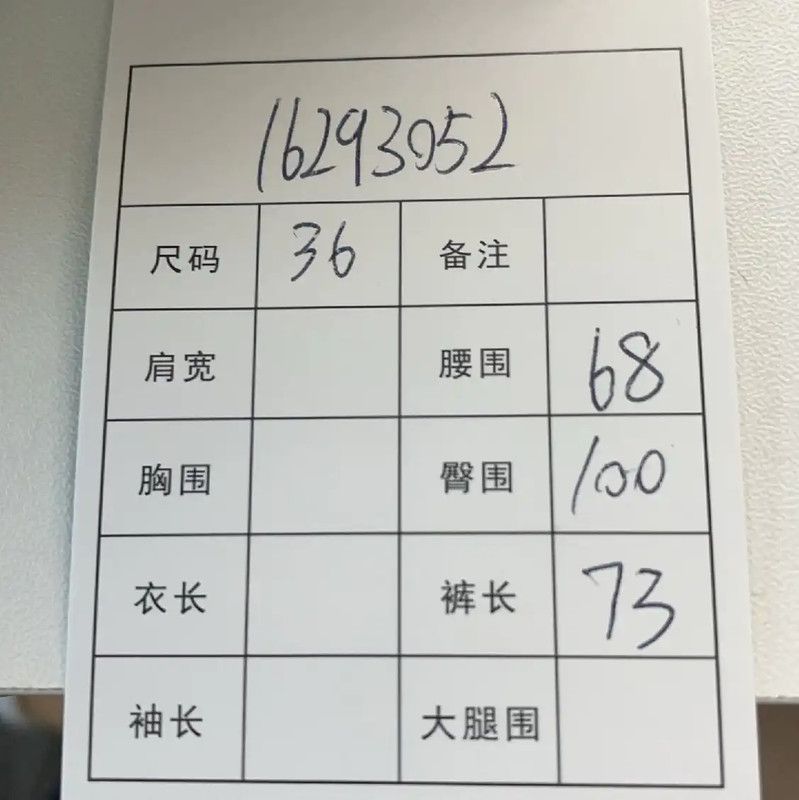 16293052
尺码 36 备注
肩宽 腰围 68
胸围 臀围 100
衣长 裤长 73
袖长 大腿围